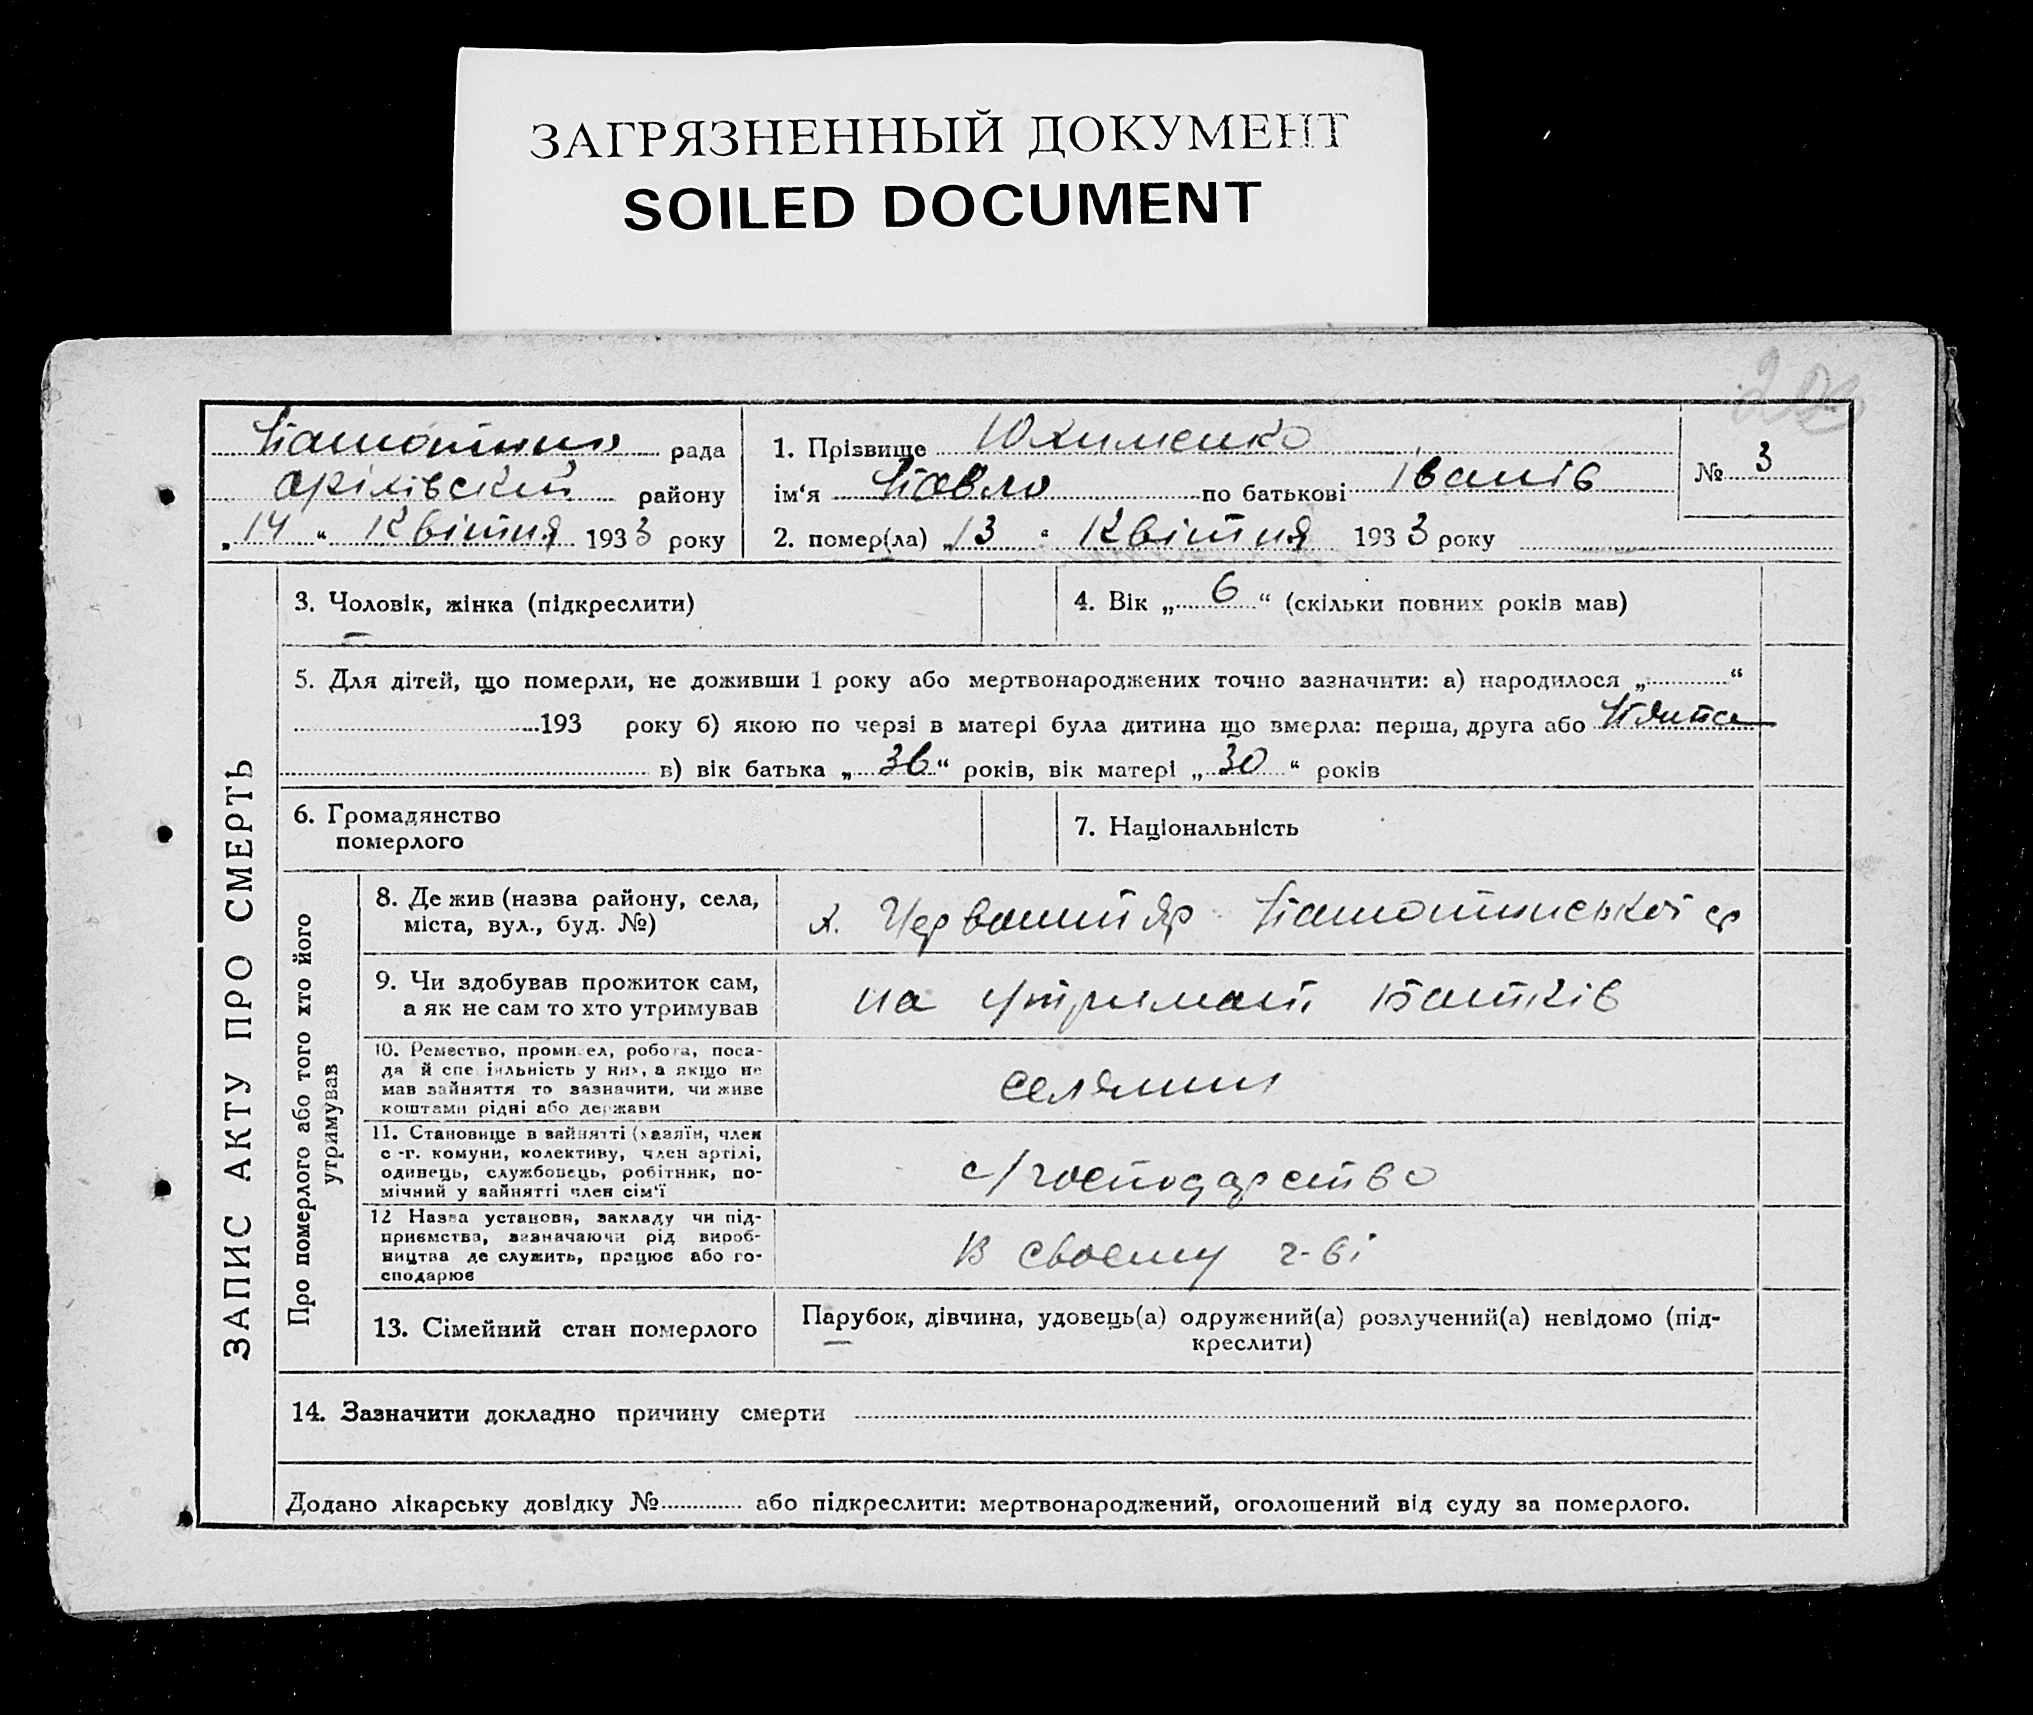 ЗАГРЯЗНЕННЫЙ ДОКУМЕНТ
SOILED DOCUMENT
рада
району
„14“ Квітня 1933 року
1. Прізвище Юхименко
ім‘я Павло по батькові Іванів
2. помер(ла) „13“ Квітня 1933 року
№ 3
ЗАПИС АКТУ ПРО СМЕРТЬ
3. Чоловік, жінка (підкреслити)
4. Вік „6“ (скільки повних років мав)
5. Для дітей, що померли, не доживши 1 року або мертвонароджених точно зазначити: а) народилося „ “
193 року б) якою по черзі в матері була дитина що вмерла: перша, друга або пʼята
в) вік батька „36“ років, вік матері „30“ років
6. Громадянство
померлого
7. Національність
Про померлого або того хто його
утримував
8. Де жив (назва району, села,
міста, вул., буд. №)
х.
9. Чи здобував прожиток сам,
а як не сам то хто утримував
на утримані батьків
10. Ремество, промисел, робота, поса-
да й спеціяльність у них, а якщо не
мав зайняття то зазначити, чи живе
коштами рідні або держави
селянин
11. Становище в зайнятті (хазяїн, член
с.-г. комуни, колективу, член артілі,
одинець, службовець, робітник, по-
мічний у зайнятті член сім‘ї
с/господарство
12 Назва установи, закладу чи під-
приємства, зазначаючи рід вироб-
ництва де служить, працює або го-
сподарює
В своему г-ві
13. Сімейний стан померлого
Парубок, дівчина, удовець(а) одружений(а) розлучений(а) невідомо (під-
креслити)
14. Зазначити докладно причину смерти
Додано лікарську довідку № або підкреслити: мертвонароджений, оголошений від суду за померлого.